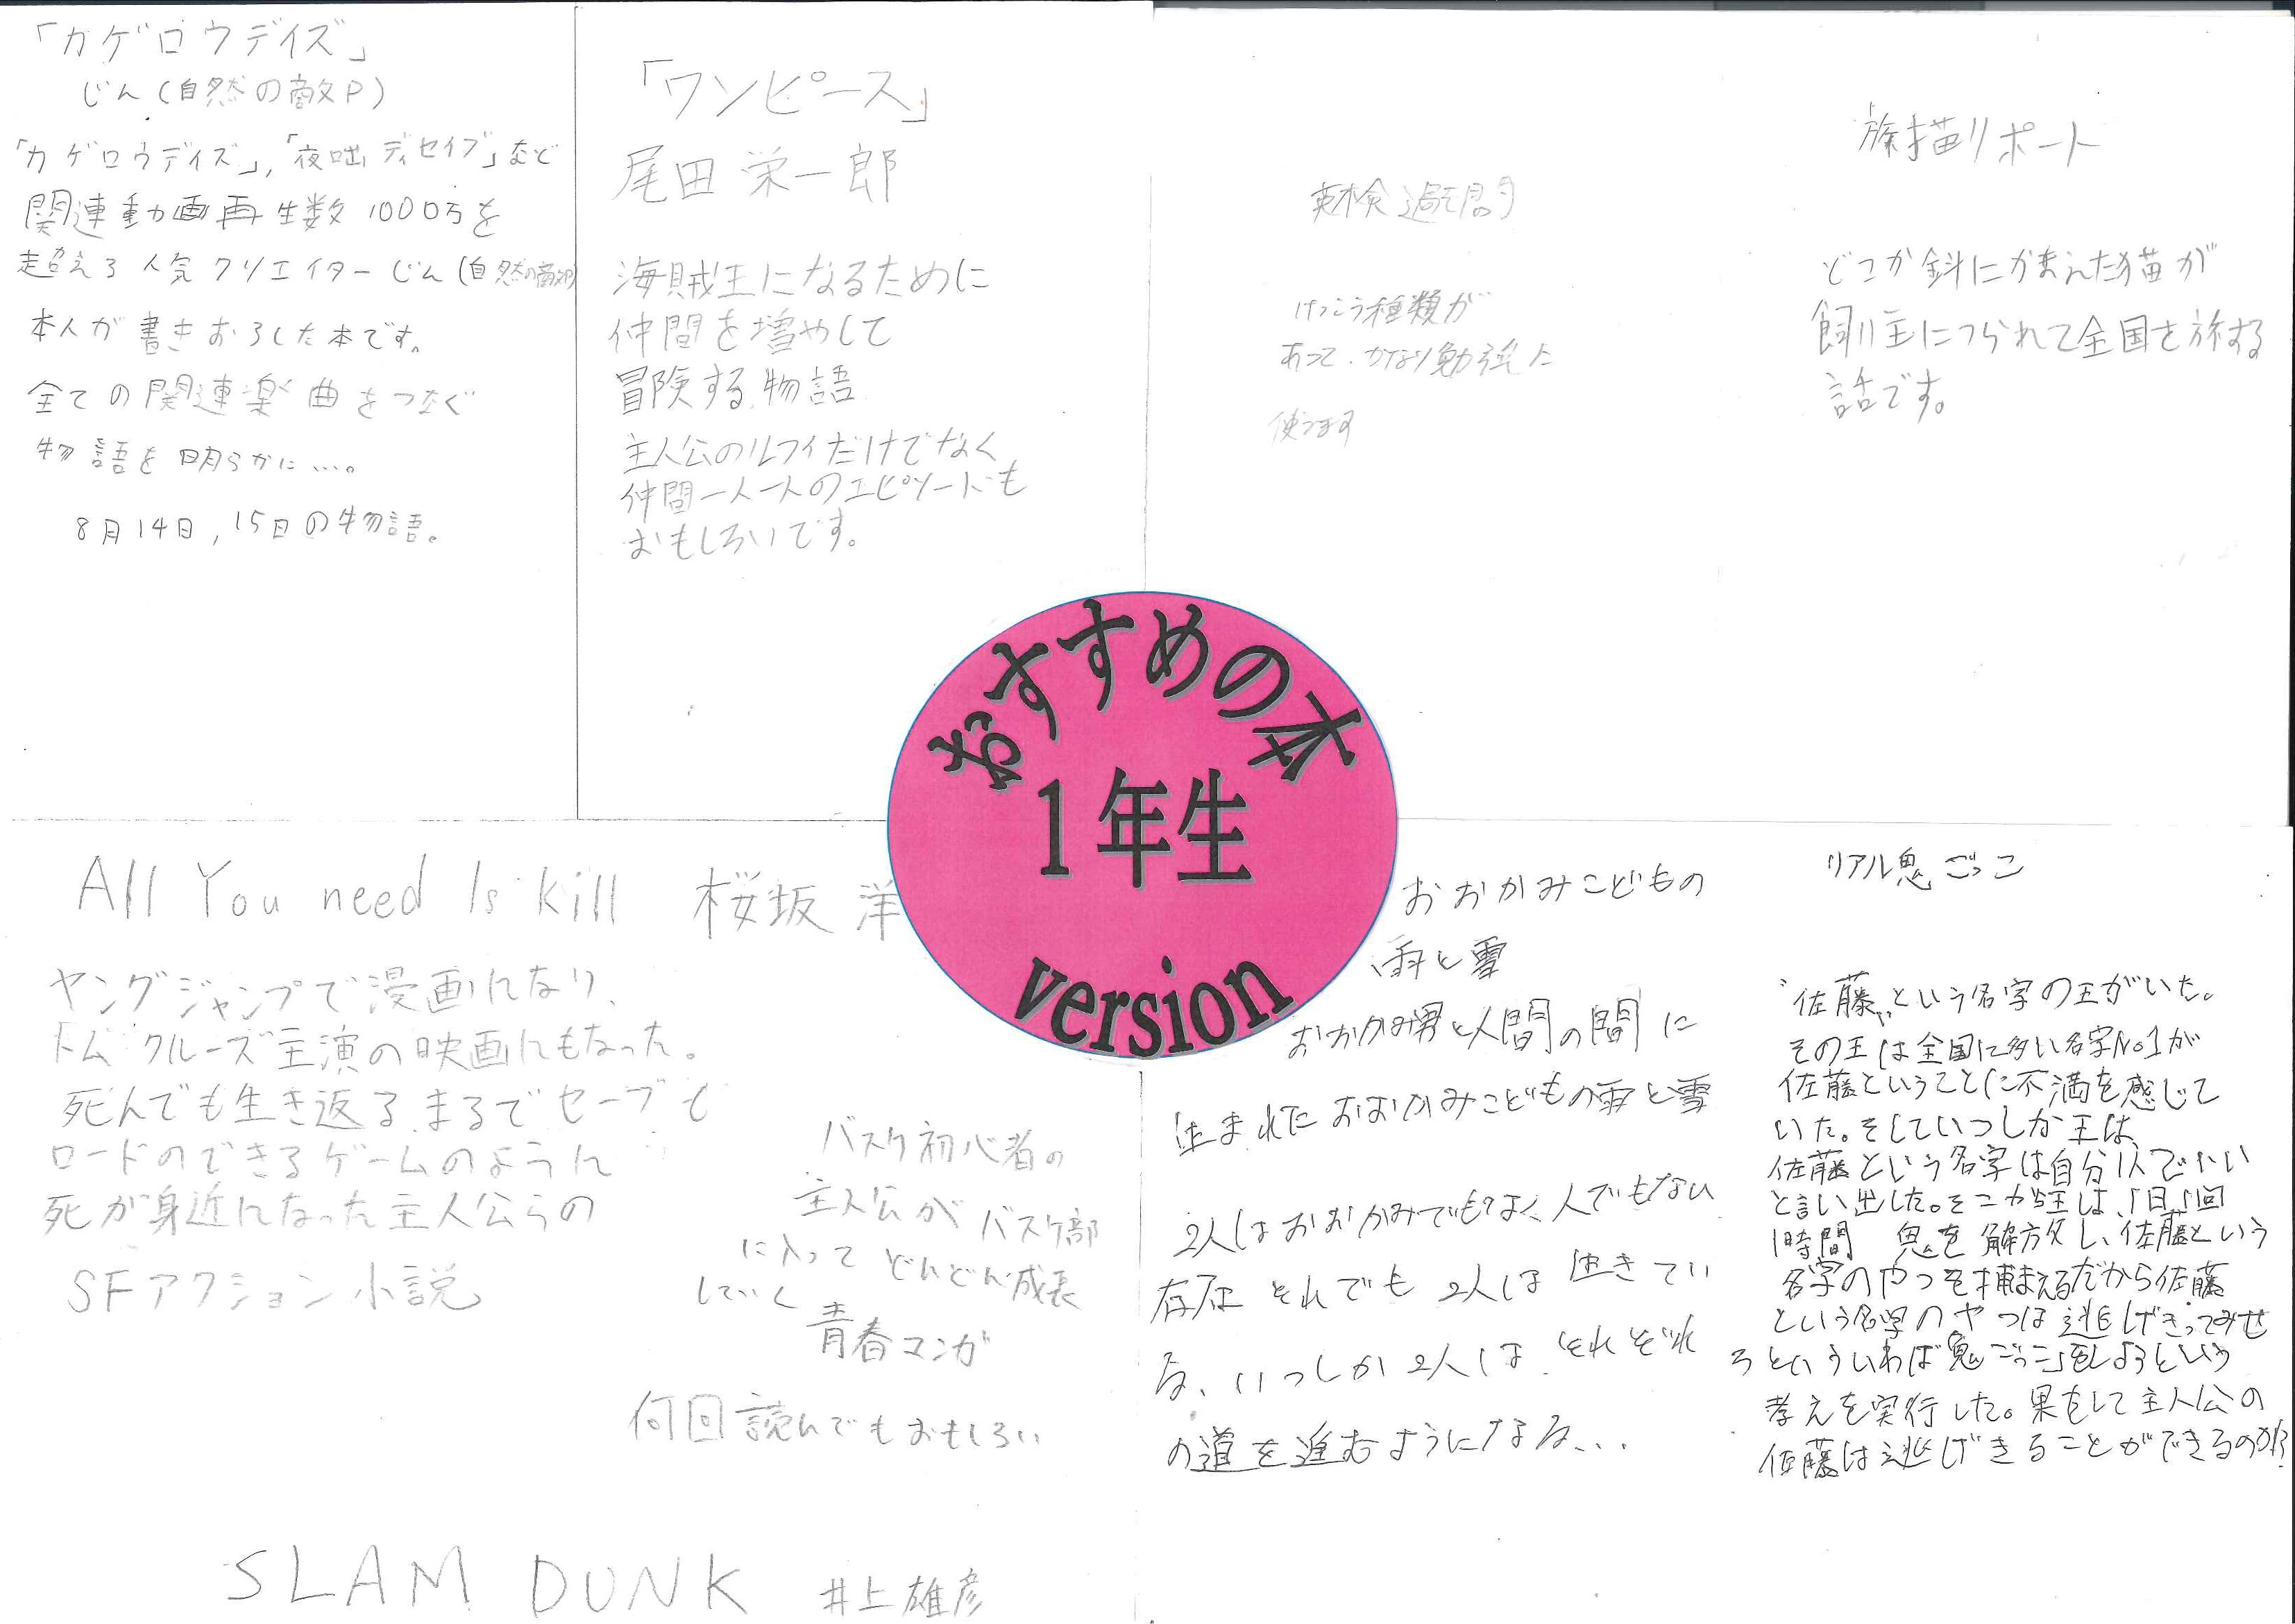 「カゲロウデイズ」
じん(自然の敵P)
「カゲロウデイズ」,「夜咄ディセイブ」など
関連動画再生数1000万を
超える人気クリエイターじん(自然の敵P)
本人が書きおろした本です。
全ての関連楽曲をつなぐ
物語を明らかに…。
8月14日,15日の物語。
「ワンピース」
尾田栄一郎
海賊王になるために
仲間を増やして
冒険する物語
主人公のルフィだけでなく
仲間一人一人のエピソードも
おもしろいです。
英検過去問
けっこう種類が
あって、かなり勉強に
使えます
旅猫リポート
どこか斜にかまえた猫が
飼い主につられて全国を旅する
話です。
おすすめの本
1年生
version
All You need Is kill 桜坂 洋
ヤングジャンプで漫画になり、
トム クルーズ主演の映画にもなった。
死んでも生き返る まるでセーブと
ロードのできるゲームのように
死が身近になった主人公らの
SFアクション小説
バスケ初心者の
主人公がバスケ部
に入ってどんどん成長
していく
青春マンガ
何回読んでもおもしろい
SLAM DUNK 井上雄彦
おおかみこどもの
雨と雪
おおかみ男と人間の間に
生まれたおおかみこどもの雨と雪
2人はおおかみでもなく、人でもない
存在 それでも2人は生きてい
る、いつしか2人は それぞれ
の道を進むようになる、、、
リアル鬼ごっこ
"佐藤"という名字の王がいた。
その王は全国に多い名字No.1が
佐藤ということに不満を感じて
いた。そしていつしか王は、
佐藤という名字は自分以外でいい
と言い出した。そこから王は、1日1回
1時間 鬼を解放し、佐藤という
名字のやつを捕まえるだから佐藤
という名字のヤツは逃げきってみせ
ろといういわば「鬼ごっこ」をしようという
考えを実行した。果をして主人公の
佐藤は逃げきることができるのか!?